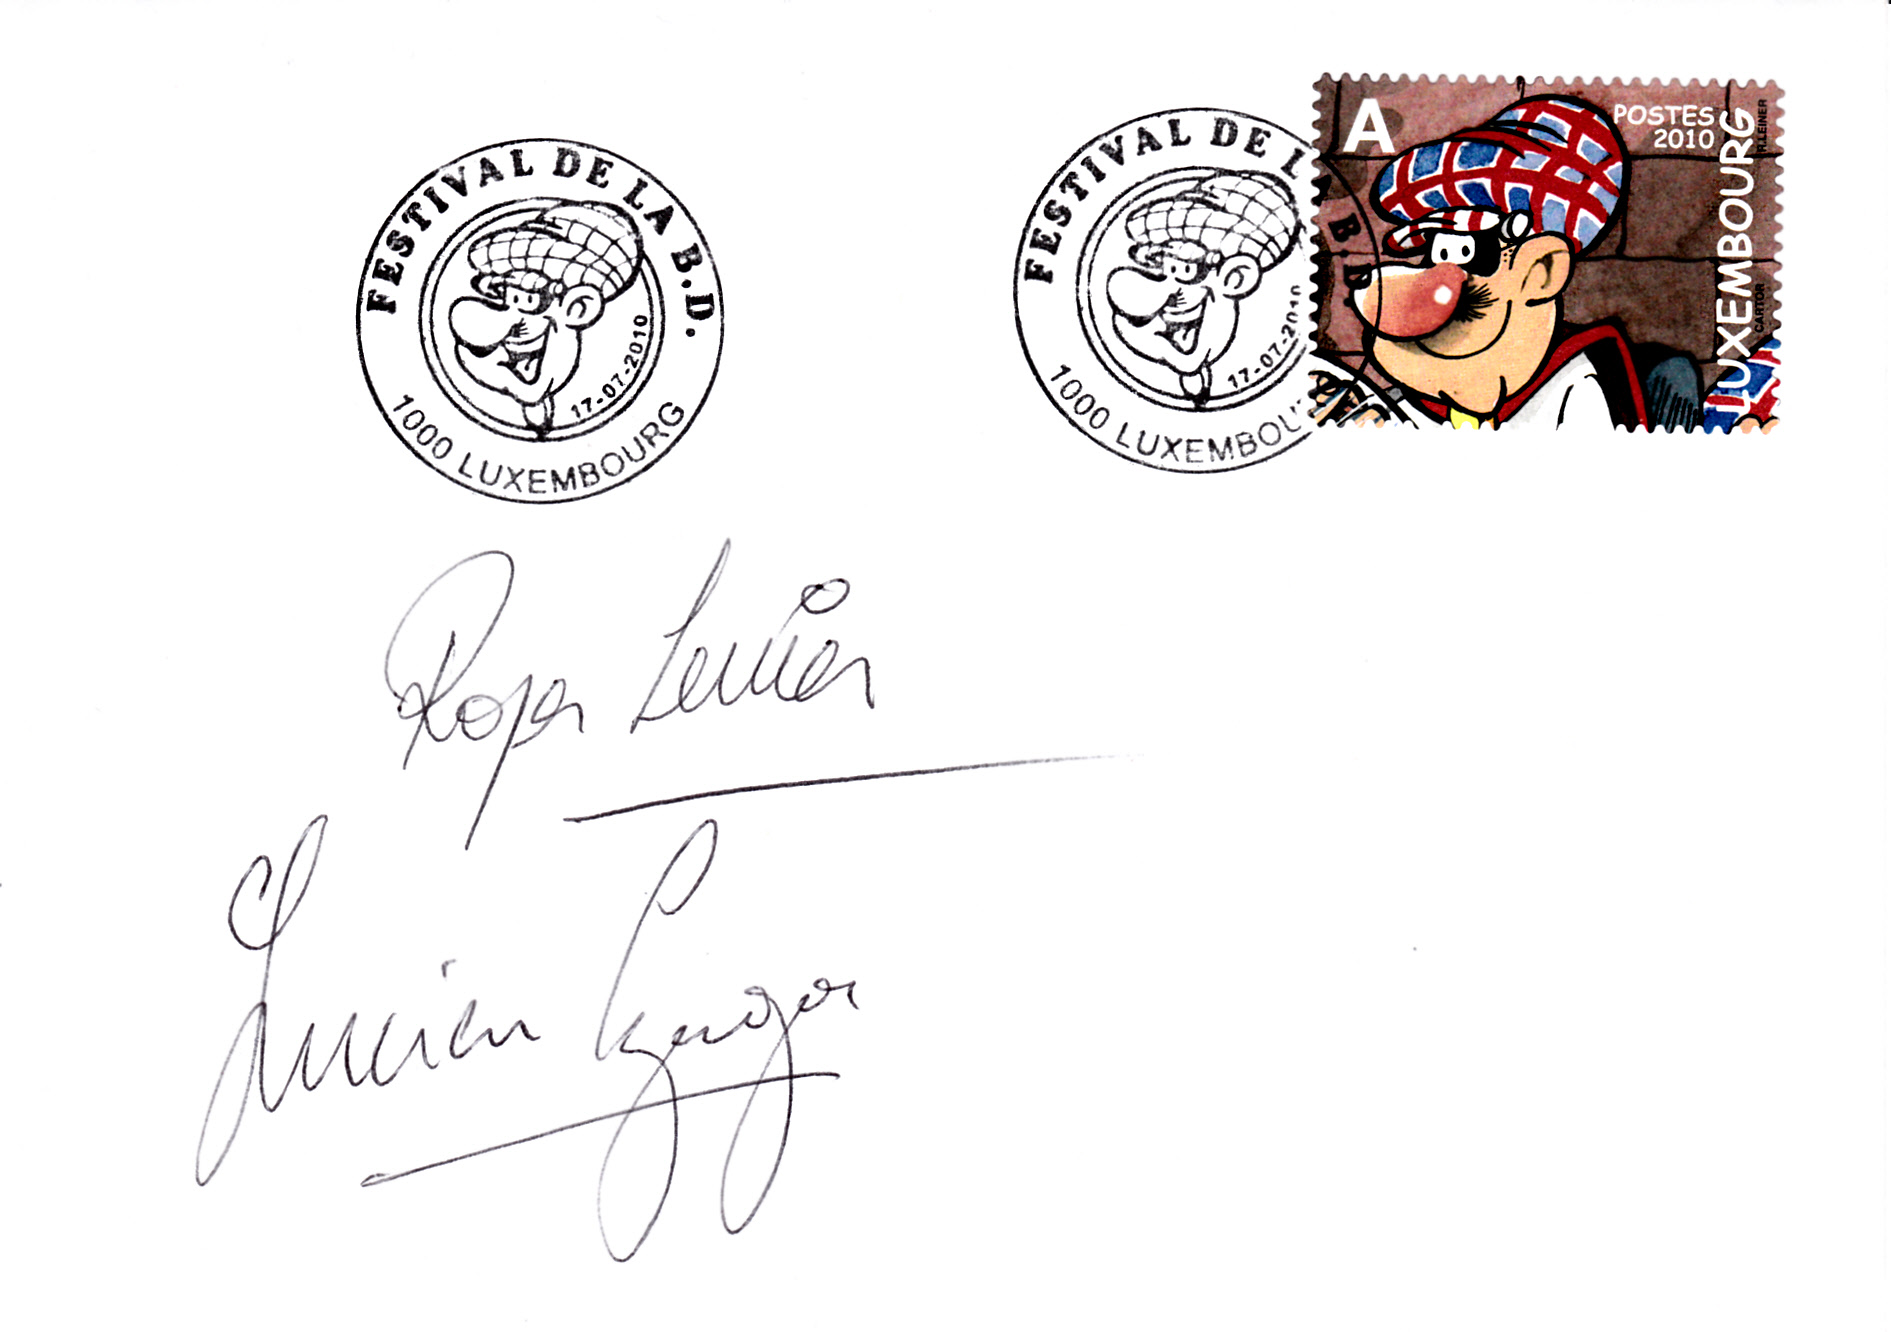 FESTIVAL DE LA B.D.
17-07-2010
1000 LUXEMBOURG
FESTIVAL DE LA B.D.
17-07-2010
1000 LUXEMBOU
A
POSTES
2010
LUXEMBOURG
R.LEINER
CARTOR
Roger Leiner
Lucien Czuga